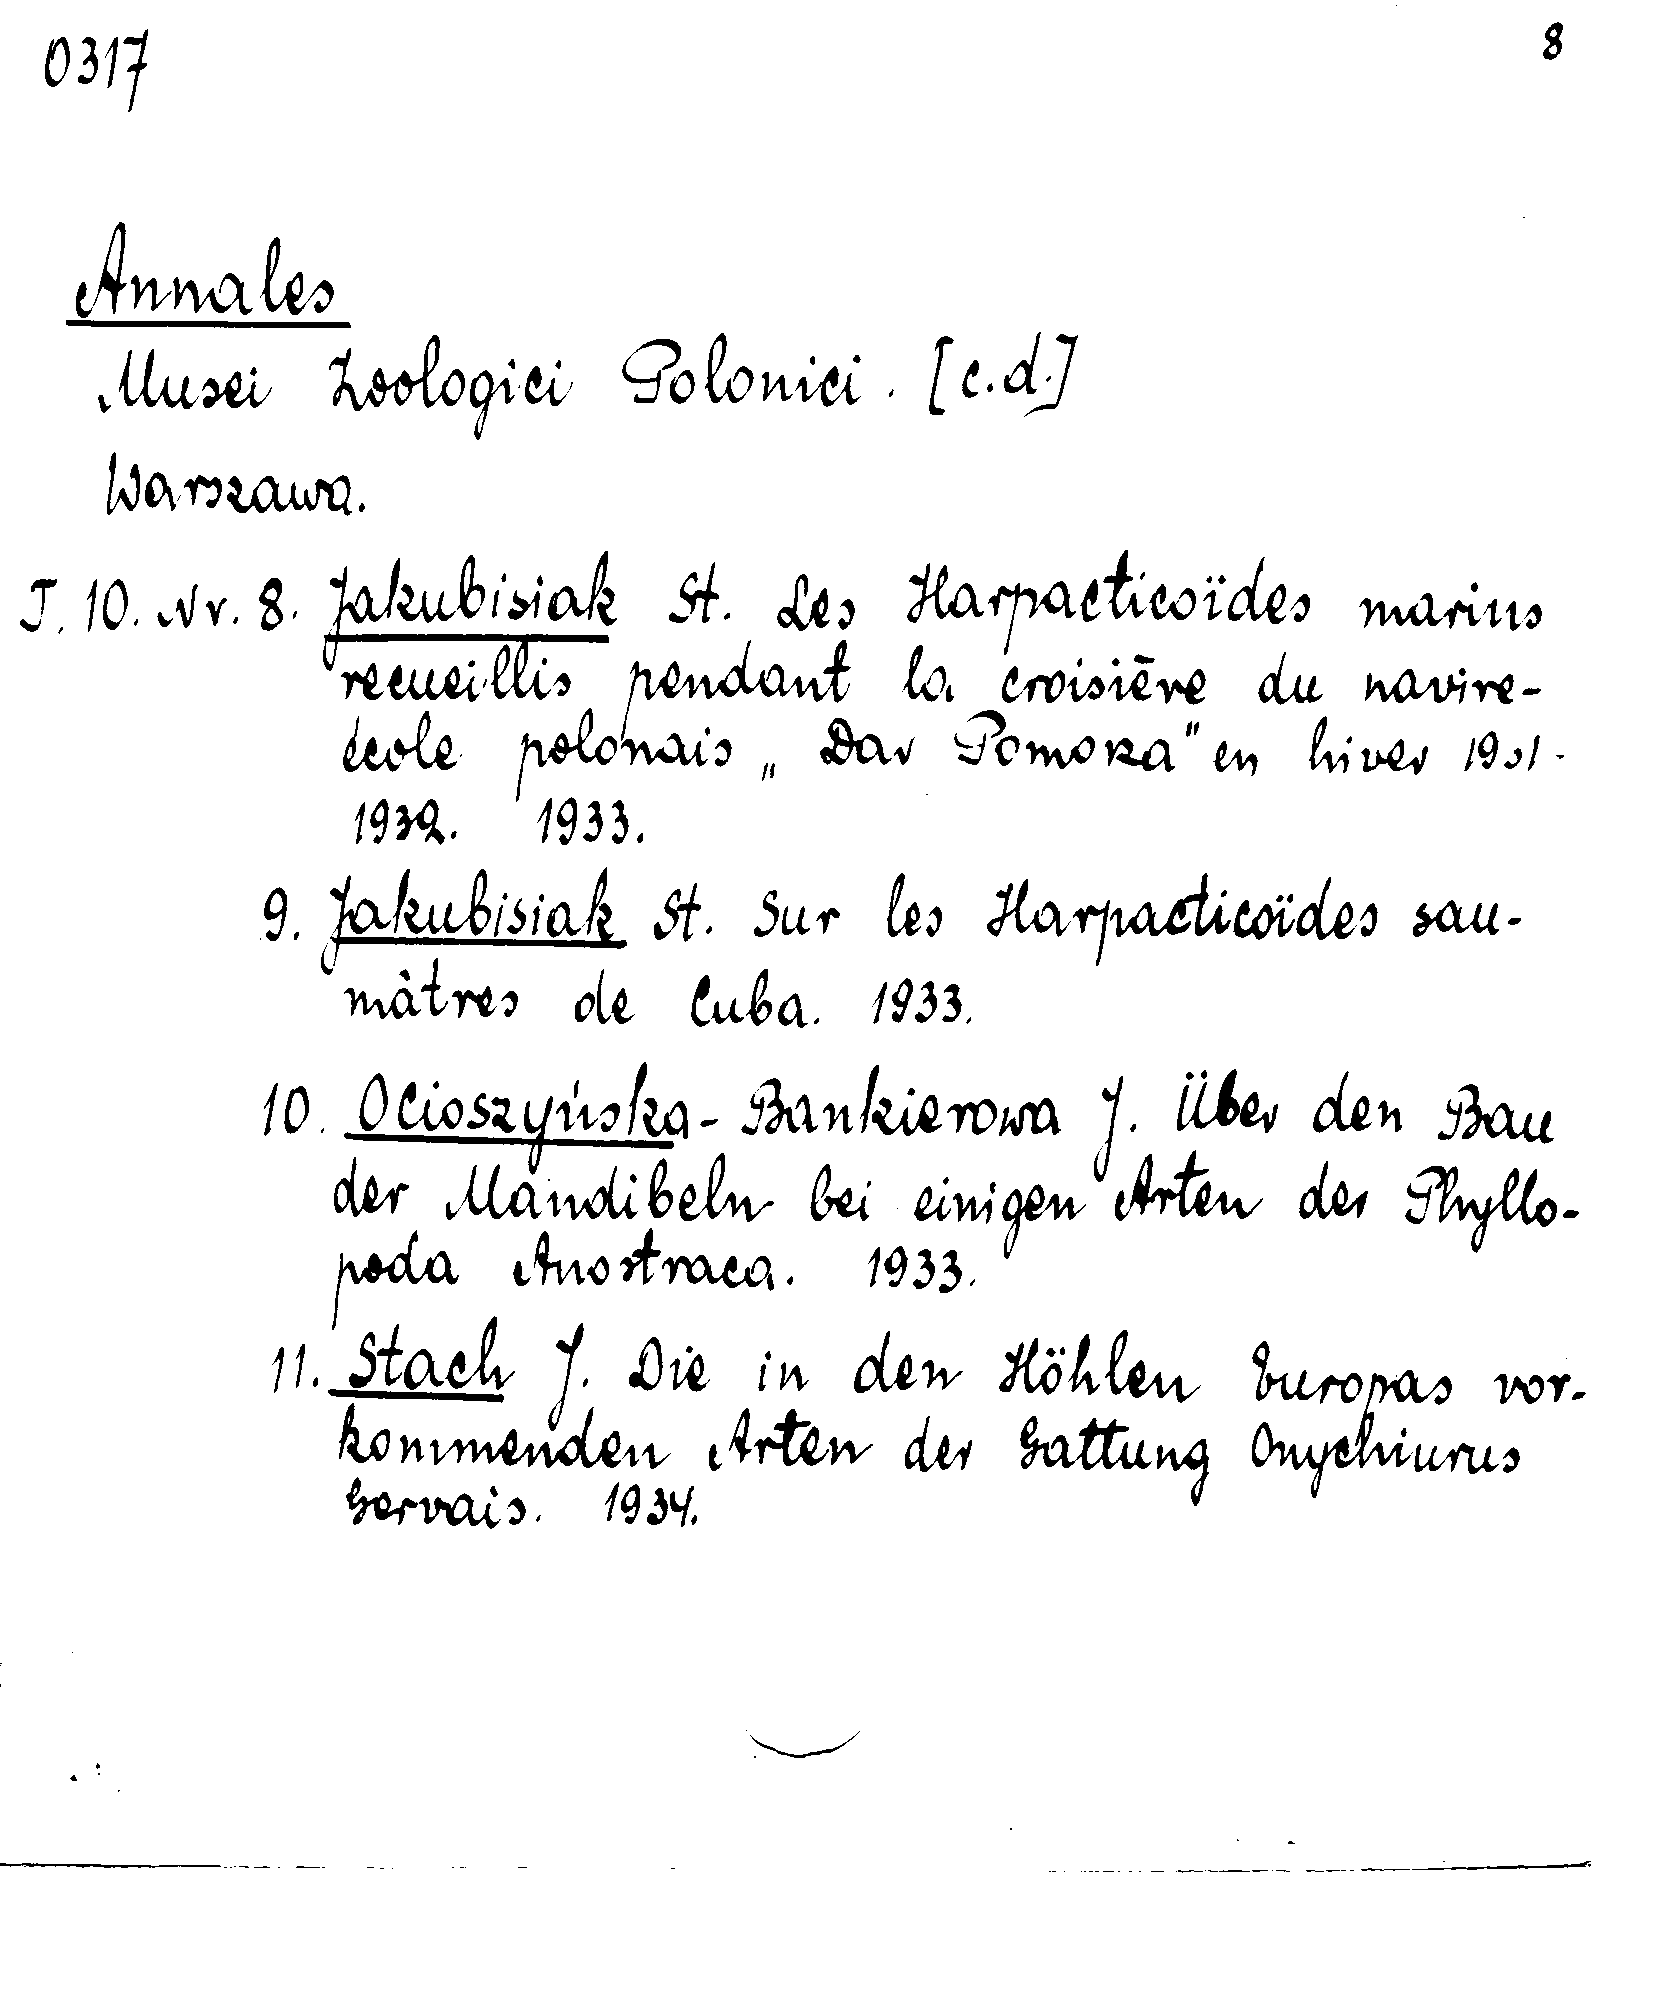 0317
8
Annales
Musei Zoologici Polonici. [c.d.]
Warszawa.
T. 10. Nr. 8. Jakubisiak St. Les Harpacticoïdes marins
recueillis pendant la croisière du navire-
école polonais „Dar Pomorza" en hiver 1931-
1932. 1933.
9. Jakubisiak St. Sur les Harpacticoïdes sau-
mâtres de Cuba. 1933.
10. Ocioszyńska-Bankierowa J. Über den Bau
der Mandibeln bei einigen Arten der Phyllo-
poda Anostraca. 1933.
11. Stach J. Die in den Höhlen Europas vor-
kommenden Arten der Gattung Onychiurus
Gervais. 1934.